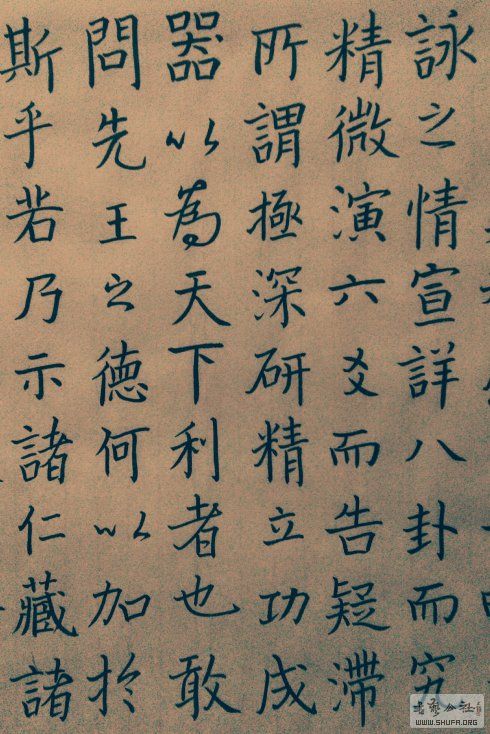 詠之情宣詳八卦而
精微演六爻而告疑滯
所謂極深研精立功成
器以為天下利者也敢
問先王之德何以加於
斯乎若乃示諸仁藏諸
WWW.SHUFA.ORG